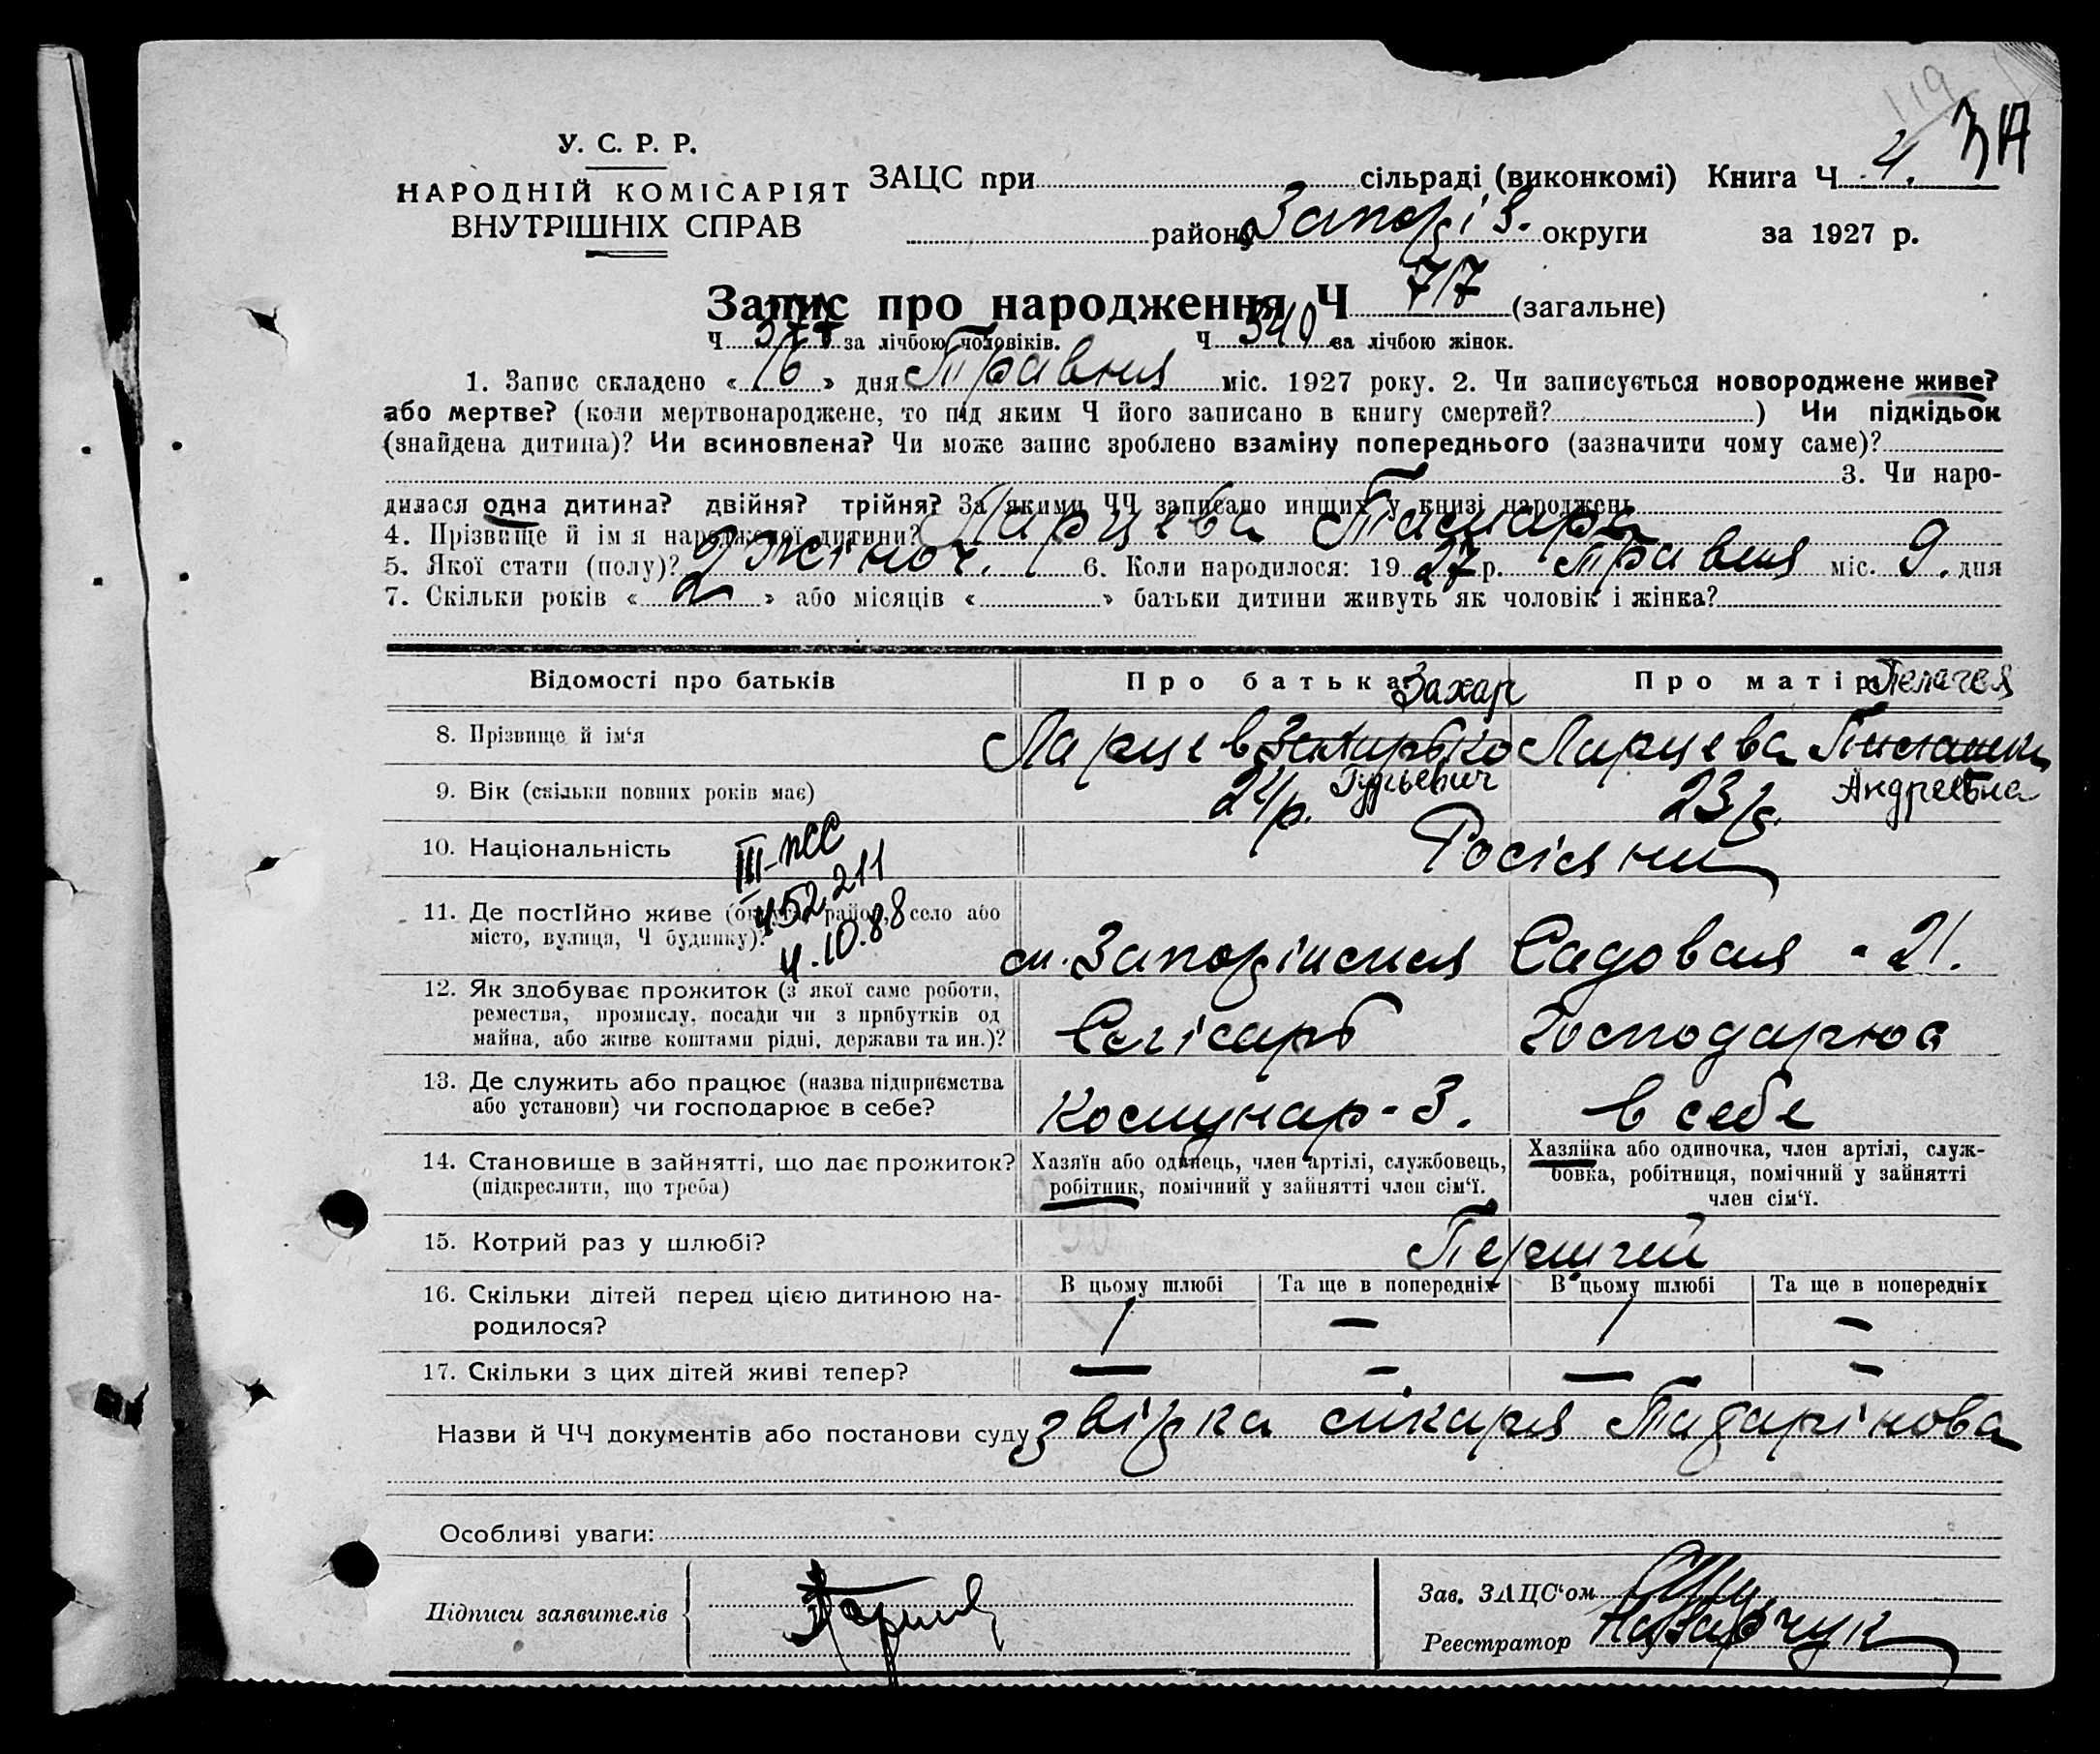 119
3А
У. С. Р. Р.
НАРОДНІЙ КОМІСАРІЯТ
ВНУТРІШНІХ СПРАВ
ЗАЦС при сільраді (виконкомі) Книга Ч 4.
району Запоріз. округи за 1927 р.
Запис про народження Ч 717 (загальне)
Ч 377 за лічбою чоловіків. Ч 340 за лічбою жінок.
1. Запис складено « 16 » дня Травня міс. 1927 року. 2. Чи записується новороджене живе?
або мертве? (коли мертвонароджене, то під яким Ч його записано в книгу смертей? ) Чи підкідьок
(знайдена дитина)? Чи всиновлена? Чи може запис зроблено взаміну попереднього (зазначити чому саме)?
3. Чи наро-
дилася одна дитина? двійня? трійня? За якими ЧЧ записано инших у книзі народжень
4. Прізвище й ім я народженої дитини? Ларцева Тамара
5. Якої стати (полу)? жіноч. 6. Коли народилося: 19 27 р. Травня міс. 9. дня
7. Скільки років « 2 » або місяців « » батьки дитини живуть як чоловік і жінка?
Відомості про батьків Про батька Захар Про матір Пелагея
8. Прізвище й ім‘я Ларцев Захарько Ларцева
9. Вік (скільки повних років має) 24 р. Гурьевич 23 р. Андреевна
10. Національність Росіяни
III-ПСС
452211
4.10.88
11. Де постІйно живе (округа, район, село або
місто, вулиця, Ч будинку)? м. Запоріжжя Садовая - 21.
12. Як здобуває прожиток (з якої саме роботи,
ремества, промислу, посади чи з прибутків од
майна, або живе коштами рідні, держави та ин.)? Слісарь Господарює
13. Де служить або працює (назва підприємства
або установи) чи господарює в себе? Комунар-З. в себе
14. Становище в зайнятті, що дає прожиток?
(підкреслити, що треба)
Хазяїн або одинець, член артілі, службовець,
робітник, помічний у зайнятті член сім‘ї.
Хазяйка або одиночка, член артілі, служ-
бовка, робітниця, помічний у зайнятті
член сім‘ї.
15. Котрий раз у шлюбі? Перший
16. Скільки дітей перед цією дитиною на-
родилося?
В цьому шлюбі Та ще в попередніх В цьому шлюбі Та ще в попередніх
1 — 1 —
17. Скільки з цих дітей живі тепер? — — — —
Назви й ЧЧ документів або постанови суду звідка лікаря
Особливі уваги:
Підписи заявителів
Зав. ЗАЦС‘ом
Реєстратор Назарчук